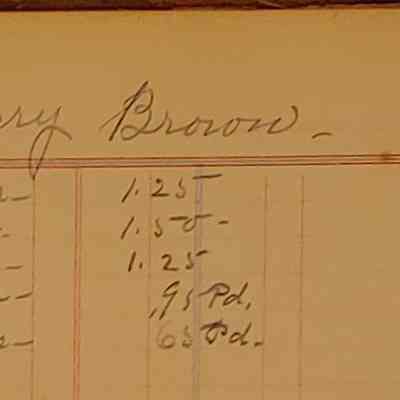 ry Brown -
1.25
1.50 -
1.25
.95 Pd.
65 Pd.